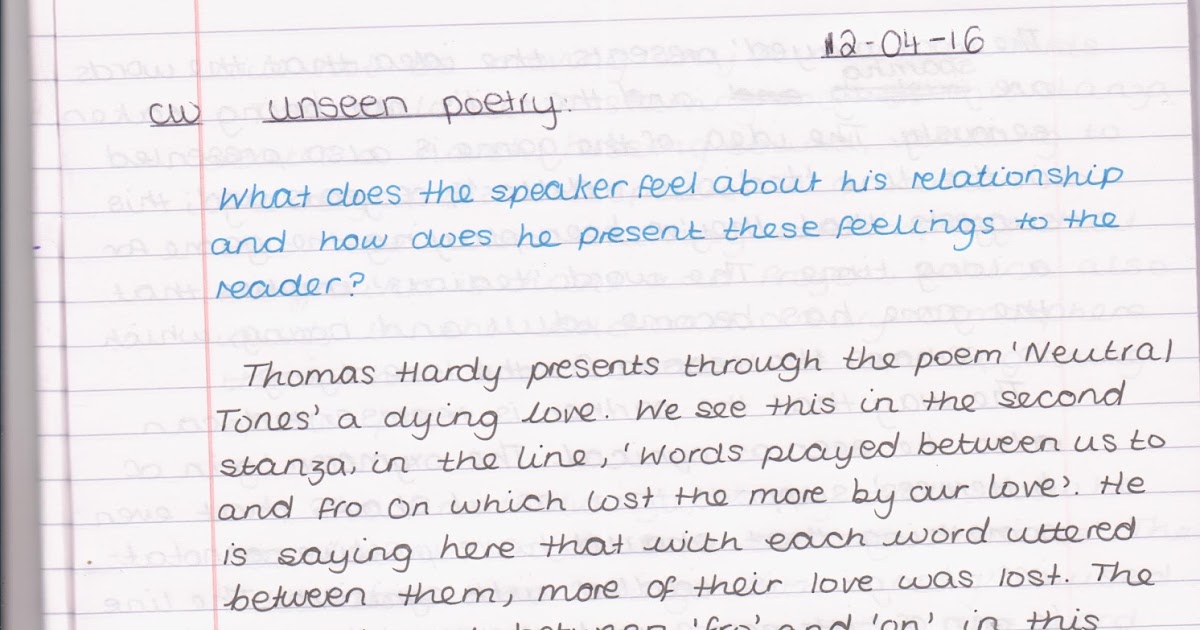 12-04-16
CW Unseen poetry.
What does the speaker feel about his relationship
and how does he present these feelings to the
reader?
Thomas Hardy presents through the poem 'Neutral
Tones' a dying love. We see this in the second
stanza, in the line, 'Words played between us to
and fro On which lost the more by our love'. He
is saying here that with each word uttered
between them, more of their love was lost. The
between 'fro' and 'on' in this